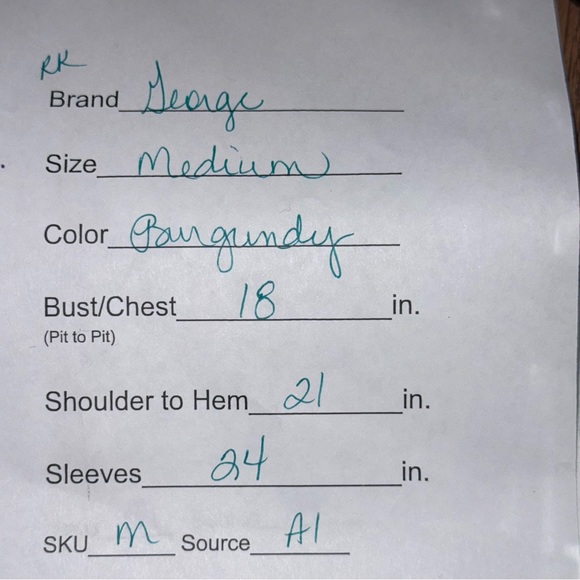 RK
Brand George
Size Medium
Color Burgundy
Bust/Chest 18 in.
(Pit to Pit)
Shoulder to Hem 21 in.
Sleeves 24 in.
SKU M Source A1